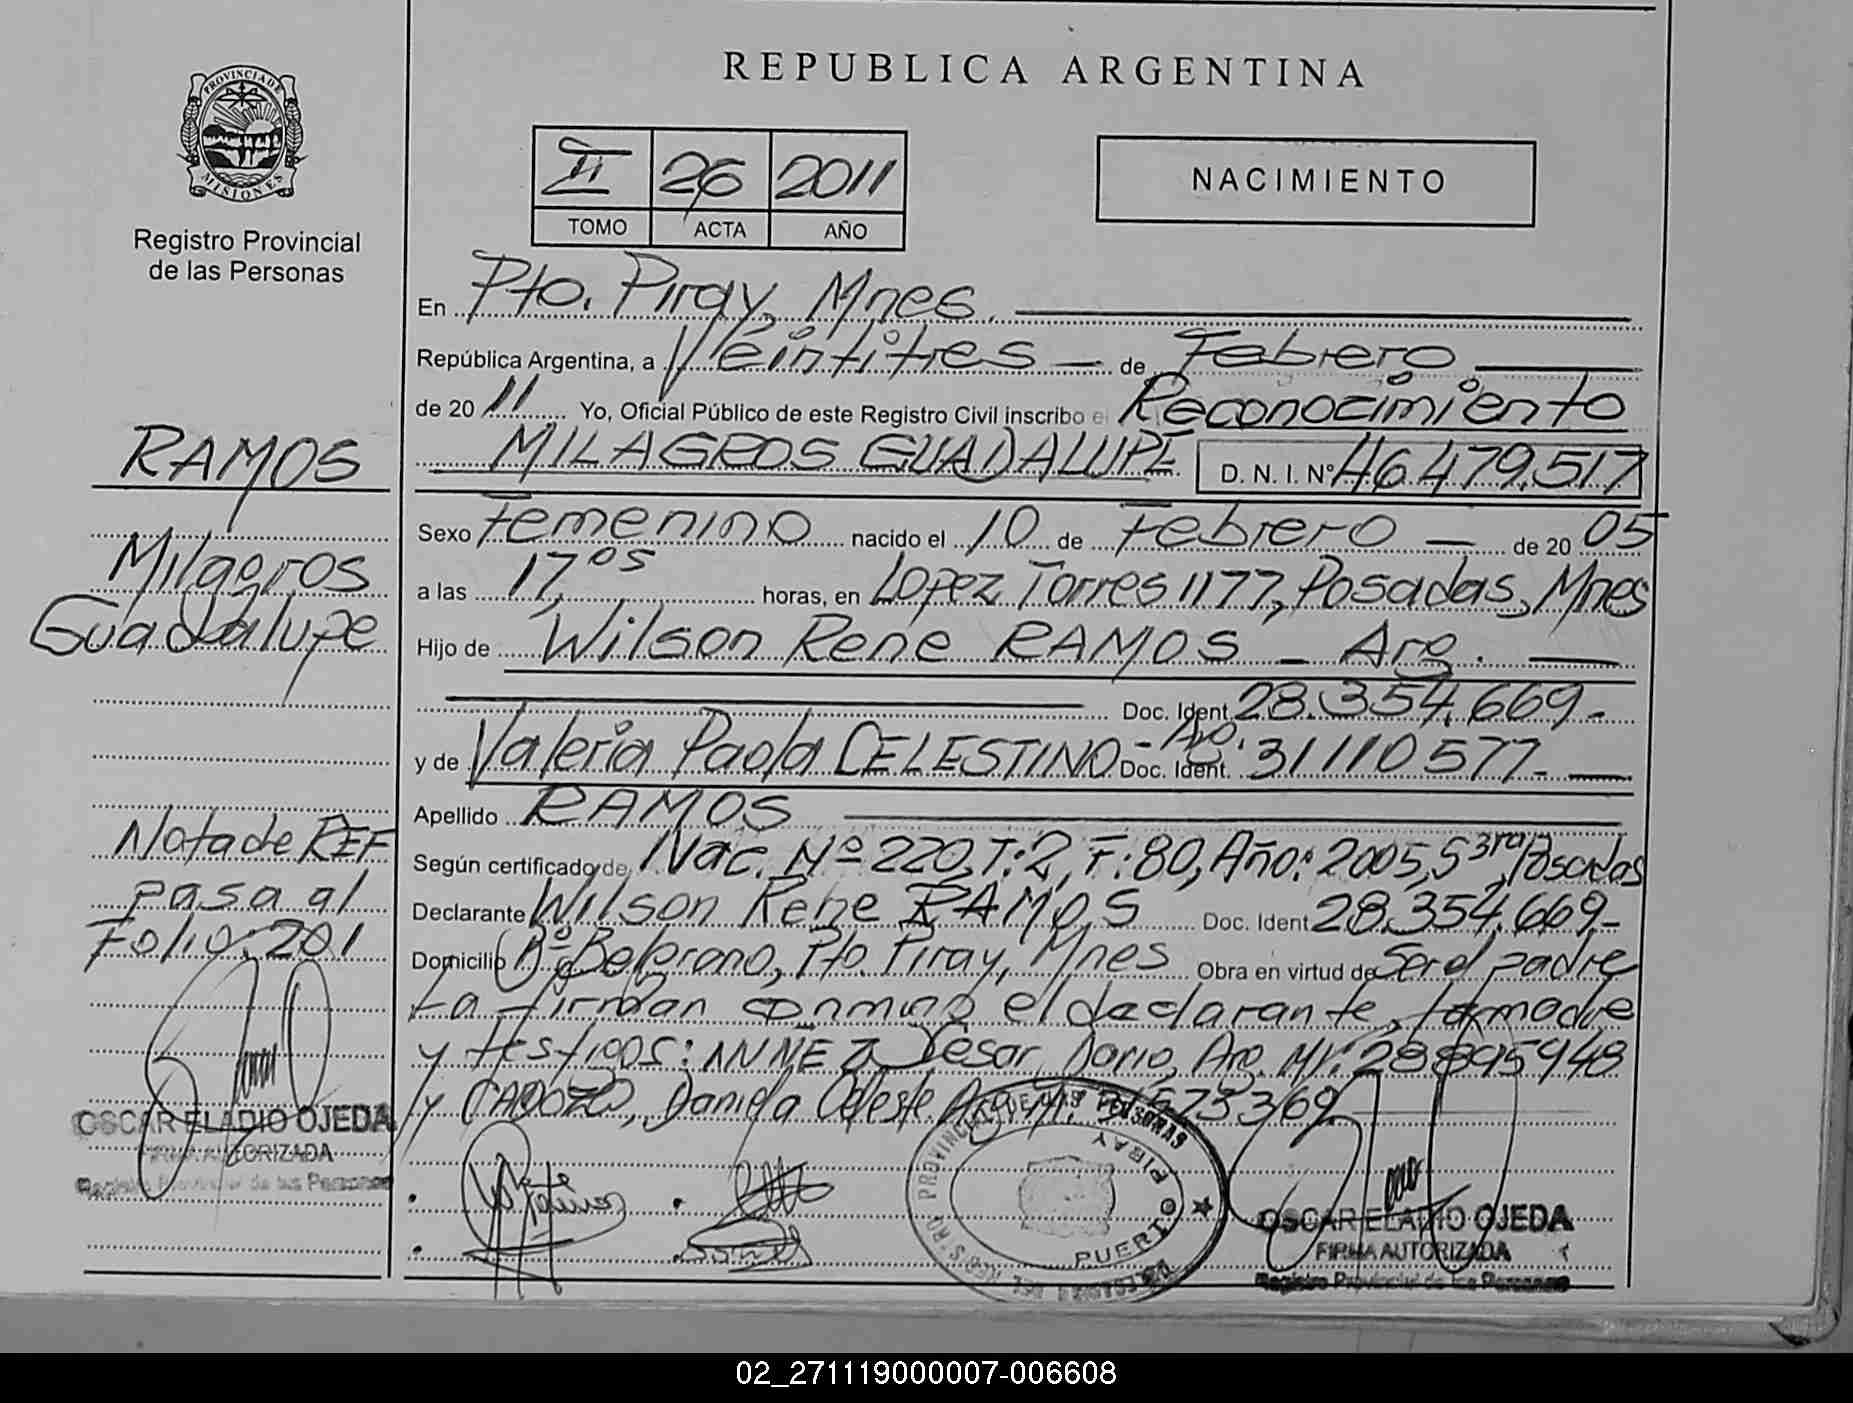 REPUBLICA ARGENTINA
PROVINCIA DE MISIONES
Registro Provincial
de las Personas
II 26 2011
TOMO ACTA AÑO
NACIMIENTO
En Pto. Piray, Mnes.
República Argentina, a Veintitres de Febrero
de 2011 Yo, Oficial Público de este Registro Civil inscribo el Reconocimiento
MILAGROS GUADALUPE D. N. I. Nº 46.479.517
Sexo Femenino nacido el 10 de Febrero de 2005
a las 17,05 horas, en Lopez Torres 1177, Posadas, Mnes
Hijo de Wilson Rene RAMOS - Arg.
Doc. Ident. 28.354.669-
y de Valeria Paola CELESTINO - Arg. Doc. Ident. 31110577-
Apellido RAMOS
Según certificado de Nac. Nº 220, T:2, F:80, Año: 2005, S 3ra, Posadas
Declarante Wilson Rene RAMOS Doc. Ident 28.354.669-
Domicilio Bº Belgrano, Pto. Piray, Mnes Obra en virtud de Ser el padre
La firman conmigo el declarante, la madre
y testigos: NUÑEZ Cesar Dario, Arg. MI: 28895948
y CARDOZO, Daniela Celeste Arg.
RAMOS
Milagros
Guadalupe
Nota de REF
pasa al
Folio: 201
OSCAR ELADIO OJEDA
FIRMA AUTORIZADA
Registro Provincial de las Personas
REGISTRO PROVINCIAL DE LAS PERSONAS
PUERTO PIRAY
OSCAR ELADIO OJEDA
FIRMA AUTORIZADA
Registro Provincial de las Personas
02_271119000007-006608